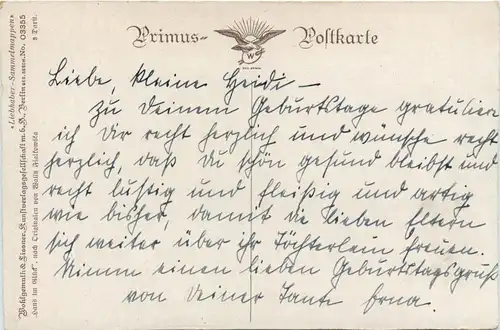 Primus- Postkarte
W
Liebe, kleine Heidi –
zu Deinem Geburtstage gratuliere
ich Dir recht herzlich und wünsche recht
herzlich, daß du schön gesund bleibst und
recht lustig und fleißig und artig
wie bisher, damit die lieben Eltern
sich weiter über ihr Töchterlein freuen.
Nimm einen lieben Geburtstagsgruß
von Deiner Tante Erna.
»Liebhaber-Sammelmappen«
Wohlgemuth & Lissner, Kunstverlagsgesellschaft m. b. H., Berlin No. 03355
"Hans im Glück", nach Originalen von Wally Fialkowska